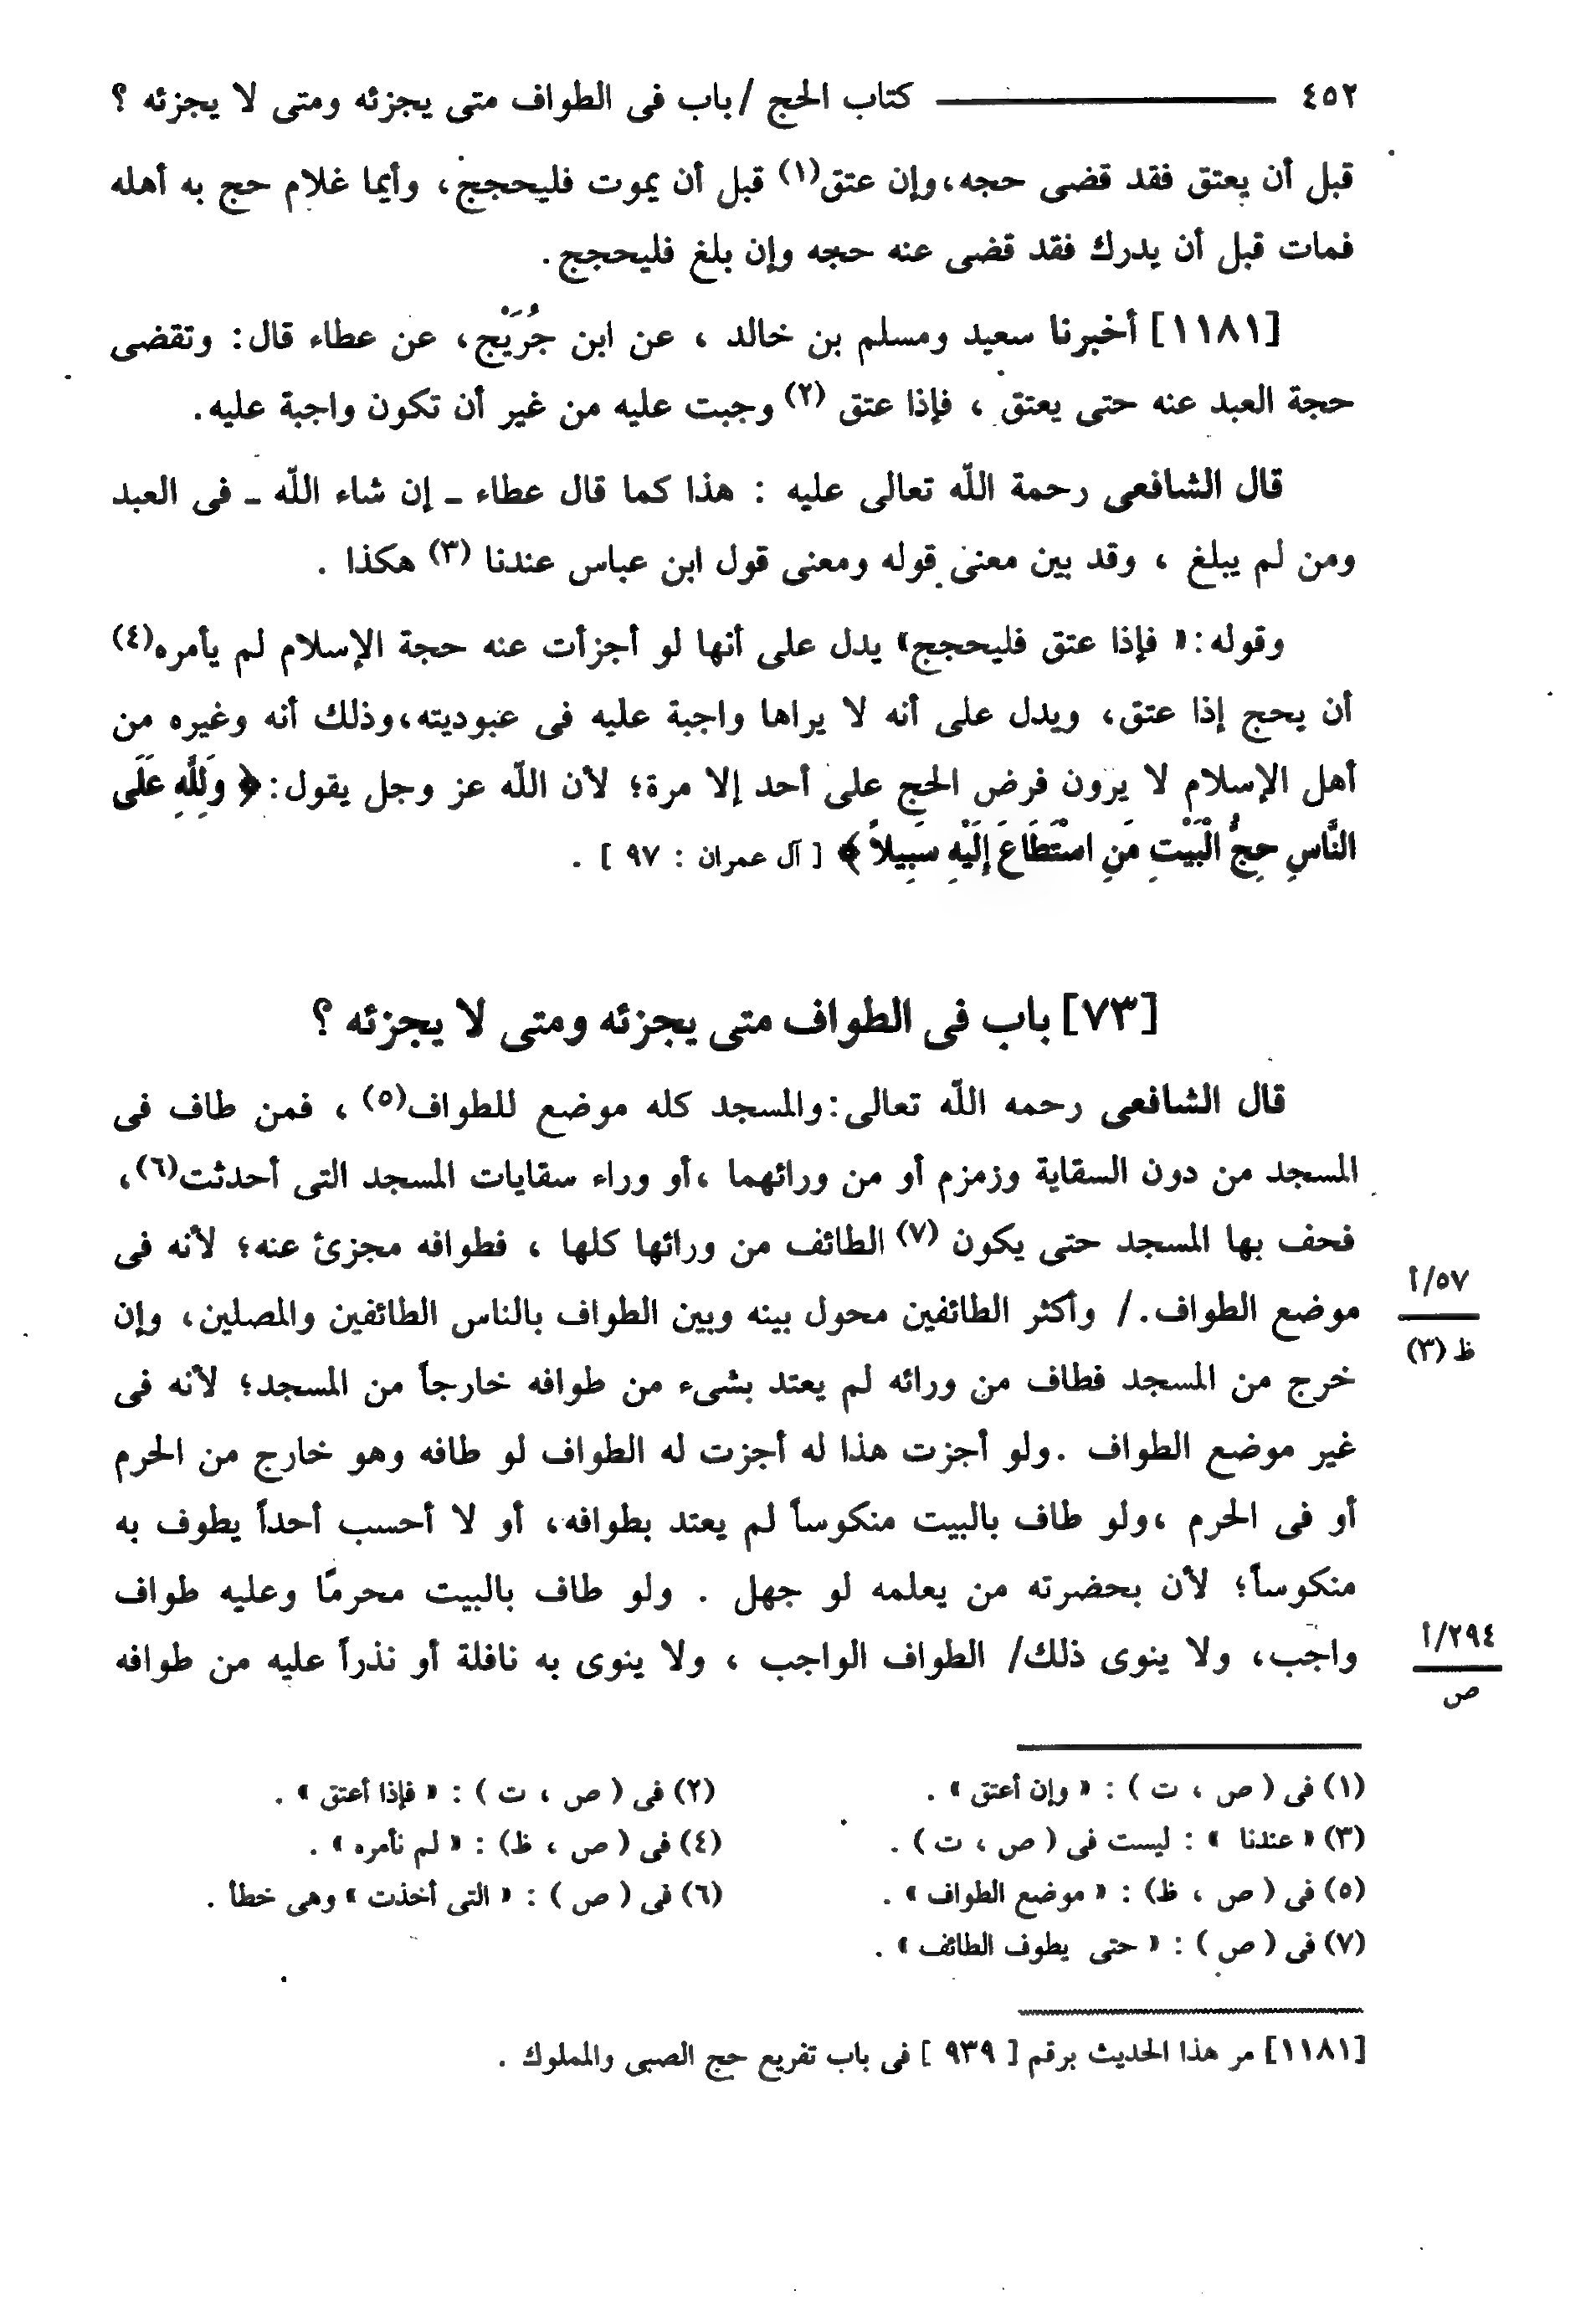 ٤٥٢ ــــــــــ كتاب الحج / باب فى الطواف متى يجزئه ومتى لا يجزئه ؟
قبل أن يعتق فقد قضى حجه، وإن عتق(١) قبل أن يموت فليحجج، وأيما غلام حج به أهله
فمات قبل أن يدرك فقد قضى عنه حجه وإن بلغ فليحجج .
[١١٨١] أخبرنا سعيد ومسلم بن خالد ، عن ابن جُرَيْج، عن عطاء قال: وتقضى
حجة العبد عنه حتى يعتق ، فإذا عتق (٢) وجبت عليه من غير أن تكون واجبة عليه.
قال الشافعى رحمة اللّه تعالى عليه : هذا كما قال عطاء ـ إن شاء اللّه ـ فى العبد
ومن لم يبلغ ، وقد بين معنى قوله ومعنى قول ابن عباس عندنا (٣) هكذا .
وقوله: « فإذا عتق فليحجج» يدل على أنها لو أجزأت عنه حجة الإسلام لم يأمره(٤)
أن يحج إذا عتق، ويدل على أنه لا يراها واجبة عليه فى عبوديته، وذلك أنه وغيره من
أهل الإسلام لا يرون فرض الحج على أحد إلا مرة؛ لأن اللّه عز وجل يقول: ﴿ وَلِلَّهِ عَلَى
النَّاسِ حِجُّ الْبَيْتِ مَنِ اسْتَطَاعَ إِلَيْهِ سَبِيلاً ﴾ [ آل عمران : ٩٧ ] .
[٧٣] باب فى الطواف متى يجزئه ومتى لا يجزئه ؟
قال الشافعى رحمه اللّه تعالى: والمسجد كله موضع للطواف(٥) ، فمن طاف فى
المسجد من دون السقاية وزمزم أو من ورائهما ، أو وراء سقايات المسجد التى أحدثت(٦)،
فحف بها المسجد حتى يكون (٧) الطائف من ورائها كلها ، فطوافه مجزئ عنه؛ لأنه فى
موضع الطواف. / وأكثر الطائفين محول بينه وبين الطواف بالناس الطائفين والمصلين، وإن
٥٧/أ
ظ (٣)
خرج من المسجد فطاف من ورائه لم يعتد بشىء من طوافه خارجاً من المسجد؛ لأنه فى
غير موضع الطواف . ولو أجزت هذا له أجزت له الطواف لو طافه وهو خارج من الحرم
أو فى الحرم ، ولو طاف بالبيت منكوساً لم يعتد بطوافه، أو لا أحسب أحداً يطوف به
منكوساً؛ لأن بحضرته من يعلمه لو جهل . ولو طاف بالبيت محرمًا وعليه طواف
واجب، ولا ينوى ذلك/ الطواف الواجب ، ولا ينوى به نافلة أو نذراً عليه من طوافه
٢٩٤/أ
ص
(١) فى ( ص ، ت ) : « وإن أعتق » .
(٢) فى ( ص ، ت ) : « فإذا أعتق » .
(٣) « عندنا » : ليست فى ( ص ، ت ) .
(٤) فى ( ص ، ظ) : « لم نأمره » .
(٥) فى ( ص ، ظ) : « موضع الطواف » .
(٦) فى ( ص ) : « التى أخذت » وهى خطأ .
(٧) فى ( ص ) : « حتى يطوف الطائف » .
[١١٨١] مر هذا الحديث برقم [ ٩٣٩ ] فى باب تفريع حج الصبى والمملوك .